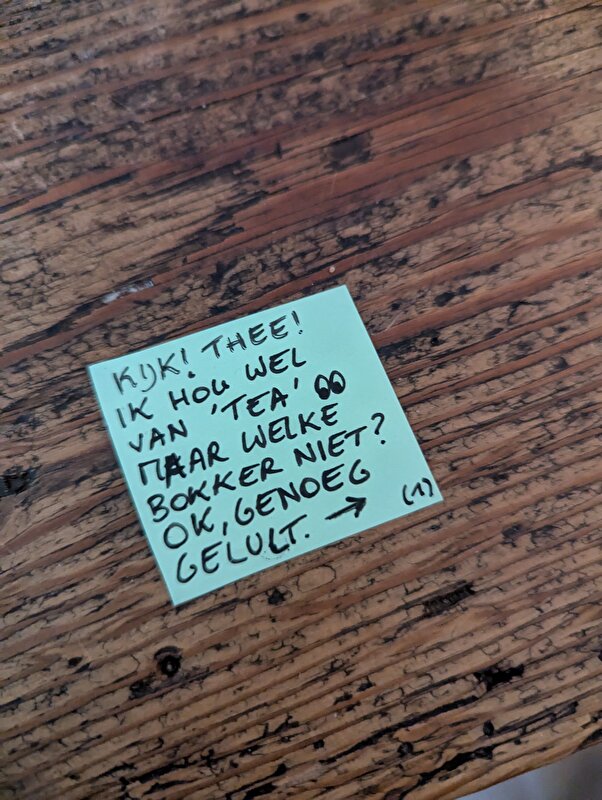 KIJK! THEE!
IK HOU WEL
VAN 'TEA' 👀
MAAR WELKE
BOKKER NIET?
OK, GENOEG
GELULT. → (1)